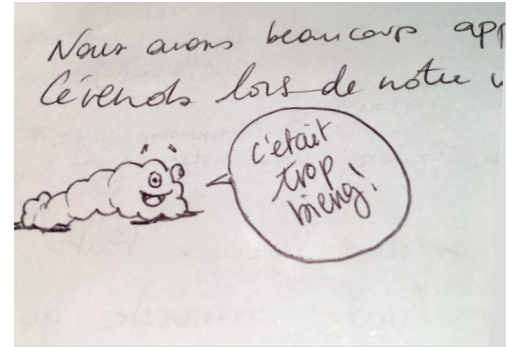 Nous avons beaucoup app
Cévenols lors de notre v
c'était
trop
bieng!